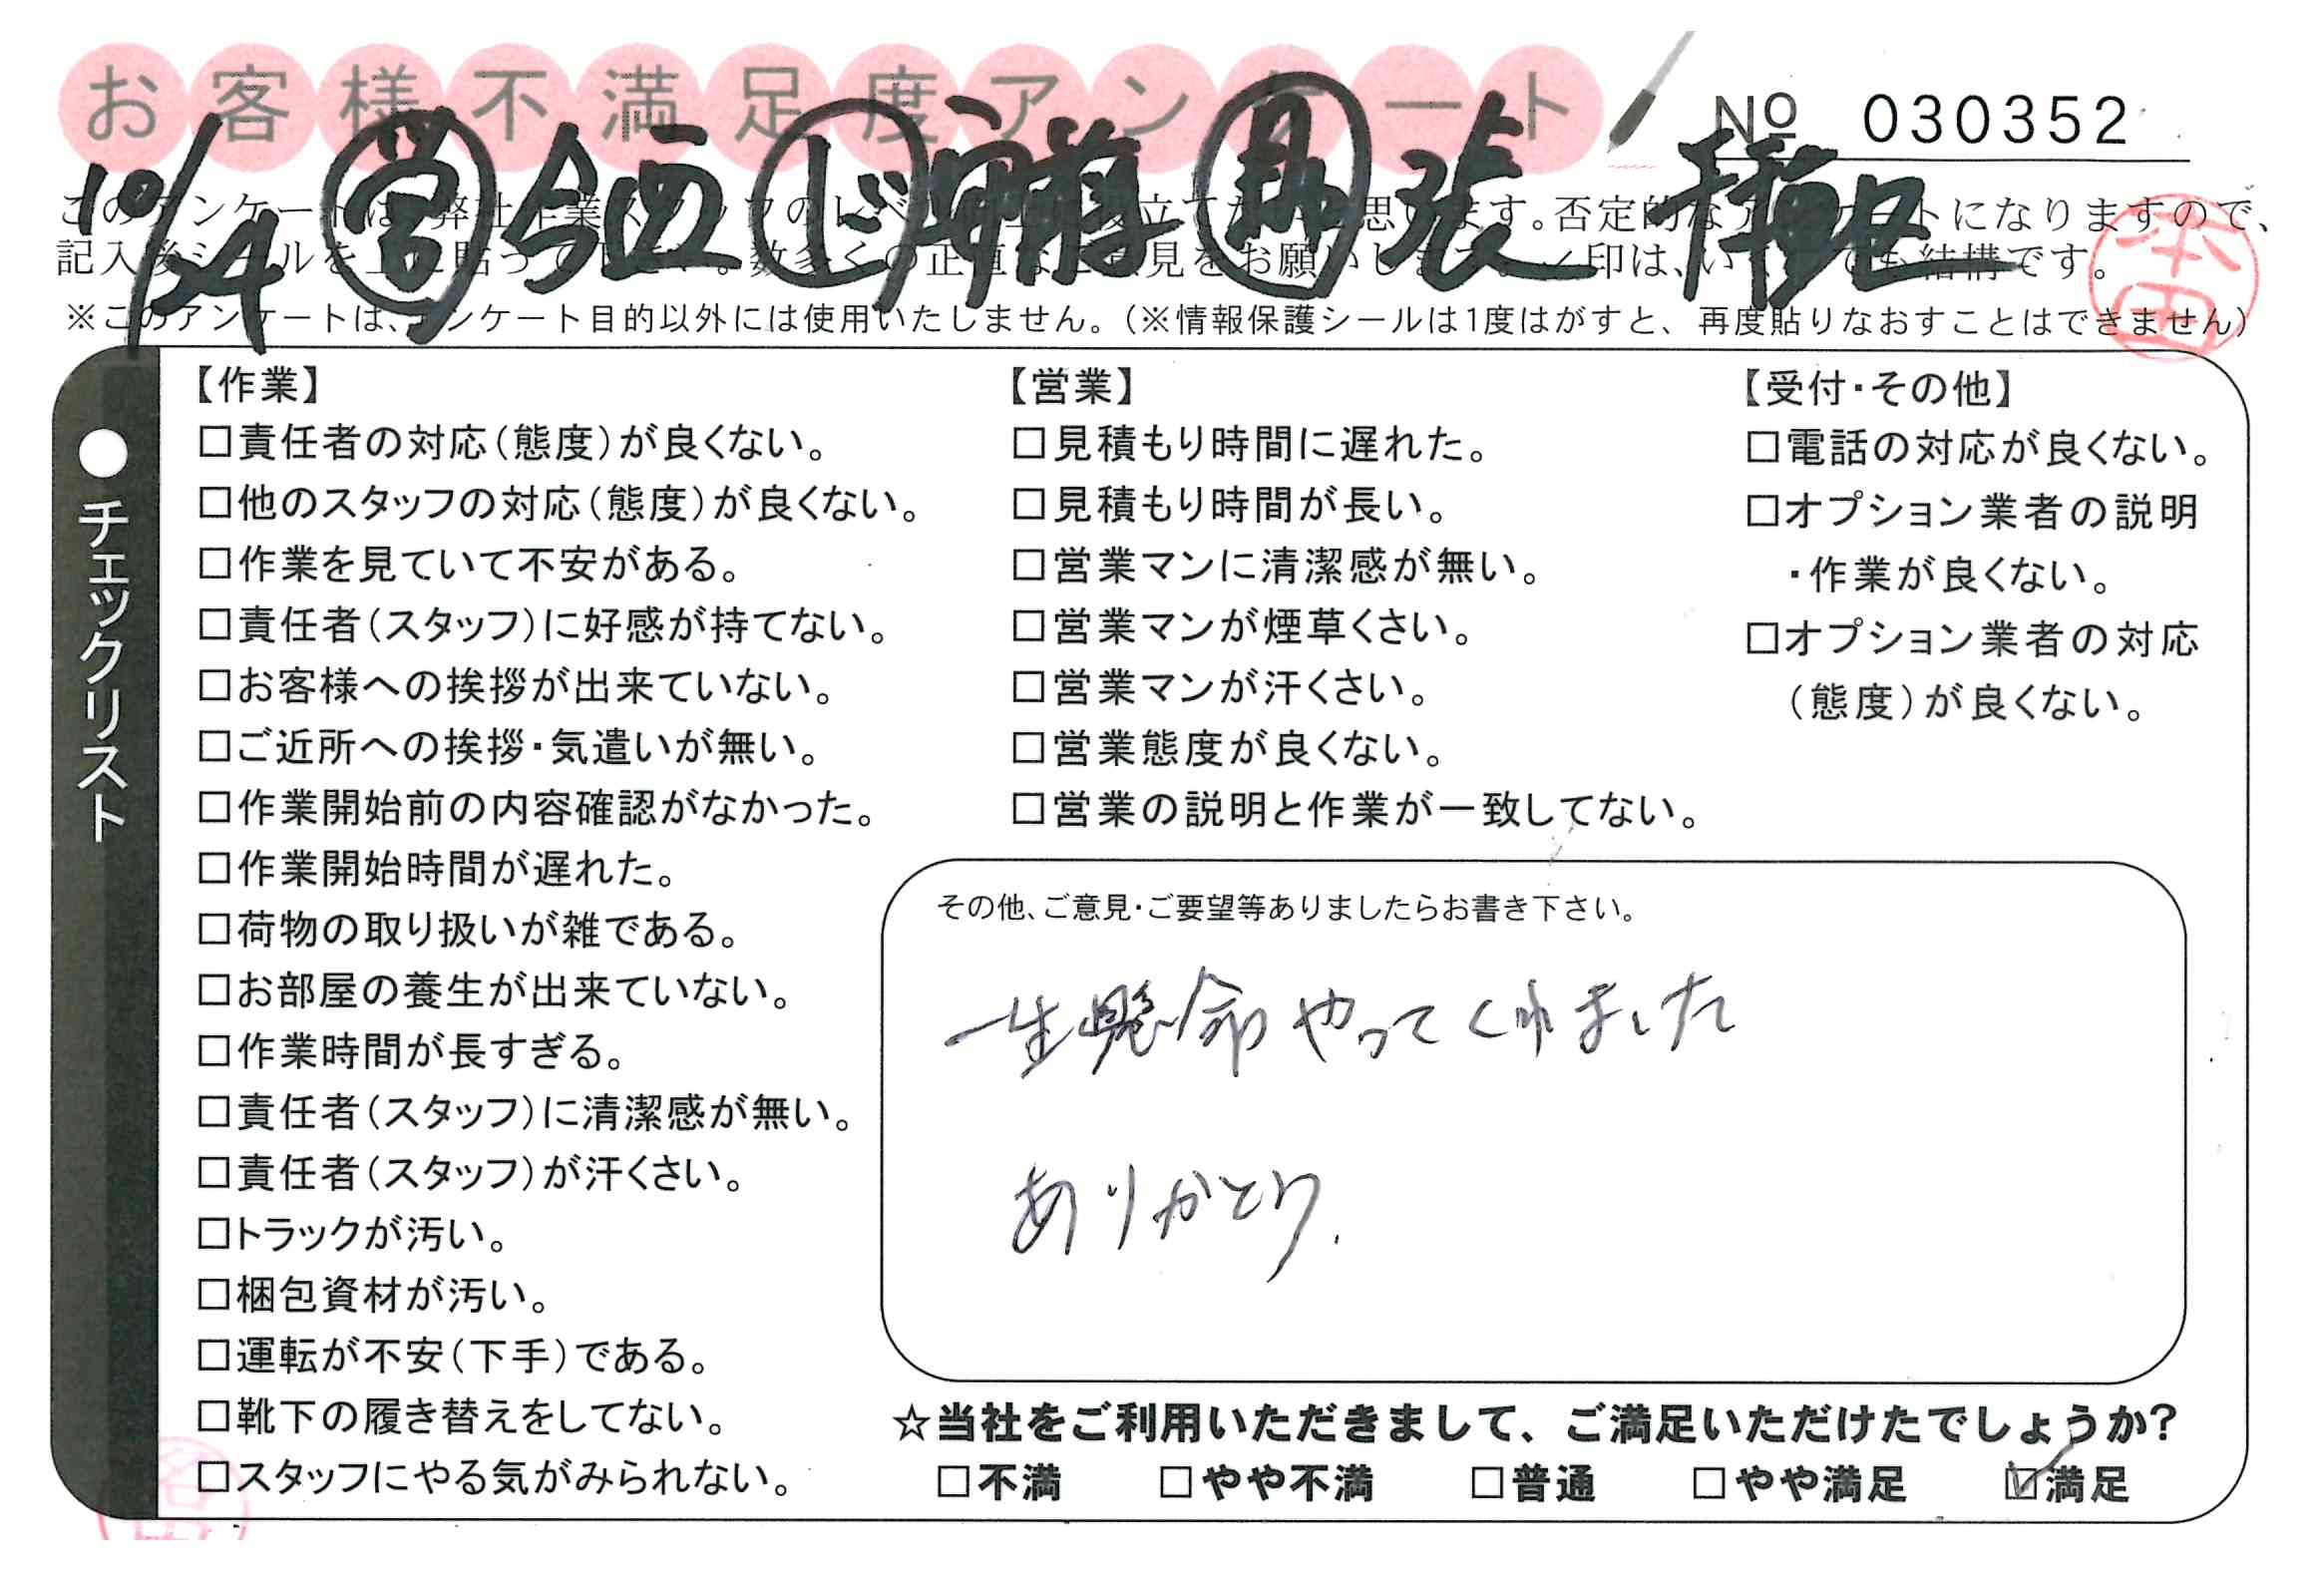 お客様不満足度アンケート
№ 030352
10/24 営 今西 ド 安前 助 張
このアンケートは、弊社作業スタッフのレベル 立て 思います。否定的なアンケートになりますので、
記入後シールを上に貼って下さい。数多くの正直なご意見をお願いします。✓印は、いくつでも結構です。
※このアンケートは、アンケート目的以外には使用いたしません。(※情報保護シールは1度はがすと、再度貼りなおすことはできません)
本田
●チェックリスト
【作業】
□責任者の対応(態度)が良くない。
□他のスタッフの対応(態度)が良くない。
□作業を見ていて不安がある。
□責任者(スタッフ)に好感が持てない。
□お客様への挨拶が出来ていない。
□ご近所への挨拶・気遣いが無い。
□作業開始前の内容確認がなかった。
□作業開始時間が遅れた。
□荷物の取り扱いが雑である。
□お部屋の養生が出来ていない。
□作業時間が長すぎる。
□責任者(スタッフ)に清潔感が無い。
□責任者(スタッフ)が汗くさい。
□トラックが汚い。
□梱包資材が汚い。
□運転が不安(下手)である。
□靴下の履き替えをしてない。
□スタッフにやる気がみられない。
【営業】
□見積もり時間に遅れた。
□見積もり時間が長い。
□営業マンに清潔感が無い。
□営業マンが煙草くさい。
□営業マンが汗くさい。
□営業態度が良くない。
□営業の説明と作業が一致してない。
【受付・その他】
□電話の対応が良くない。
□オプション業者の説明
・作業が良くない。
□オプション業者の対応
(態度)が良くない。
その他、ご意見・ご要望等ありましたらお書き下さい。
一生懸命やってくれました
ありがとう.
☆当社をご利用いただきまして、ご満足いただけたでしょうか?
□不満 □やや不満 □普通 □やや満足 ☑満足